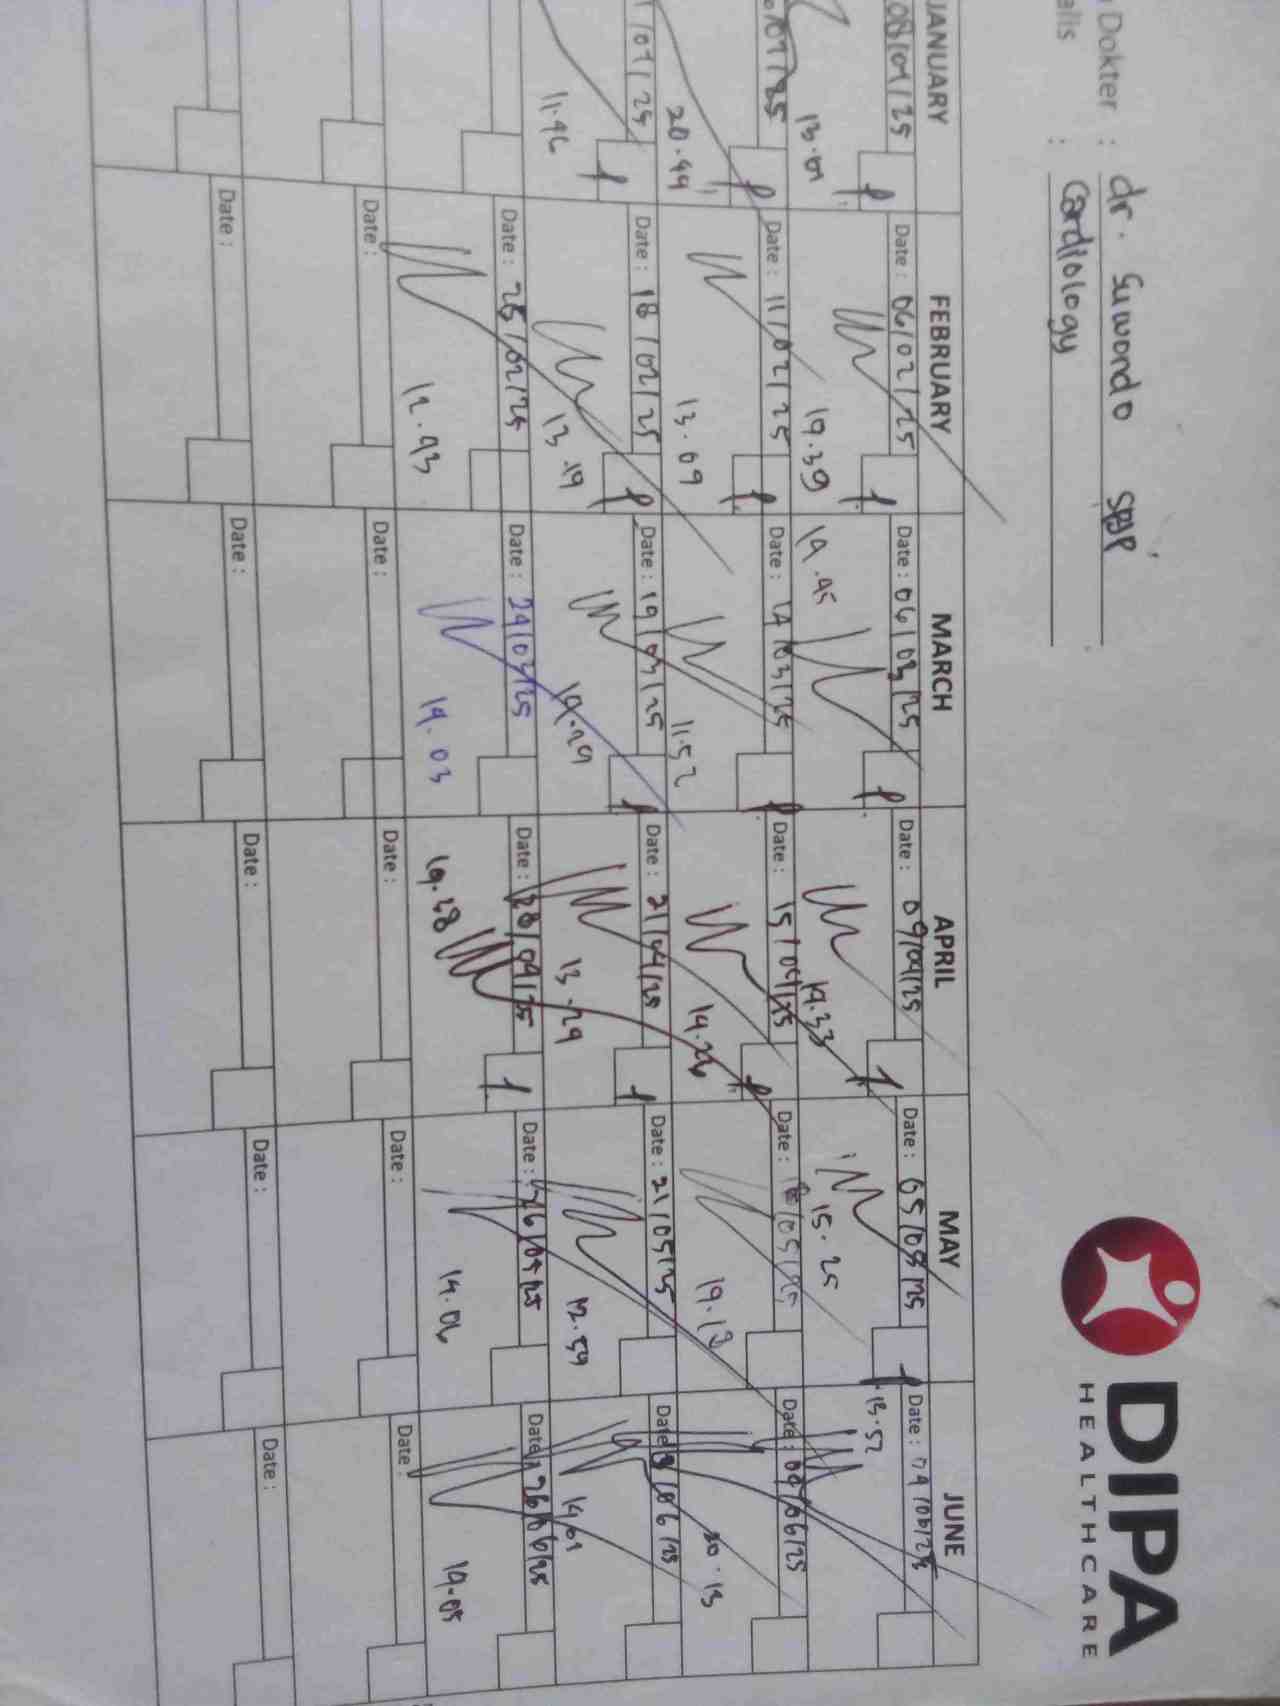 DIPA
HEALTHCARE
Dokter : dr. Suwondo SpJP
alis : Cardiology
JANUARY FEBRUARY MARCH APRIL MAY JUNE
08/01/25 Date : 06/02/25 Date : 06/03/25 Date : 09/04/25 Date : 05/05/25 Date : 04/06/25
13.01 19.39 19.45 19.33 15.25 13.52
/01/25 Date : 11/02/25 Date : 14/03/25 Date : 15/04/25 Date : /05/25 Date : 09/06/25
20.49 13.09 11.52 19.26 19.18 20.13
/01/25 Date : 18/02/25 Date : 19/03/25 Date : 21/04/25 Date : 21/05/25 Date /06/25
11.46 13.19 19.29 13.29 12.59 14.01
Date : 25/02/25 Date : 24/03/25 Date : 28/04/25 Date : Date 26/06/25
12.43 14.03 19.28 14.06 14.05
Date : Date : Date : Date : Date :
Date : Date : Date : Date : Date :